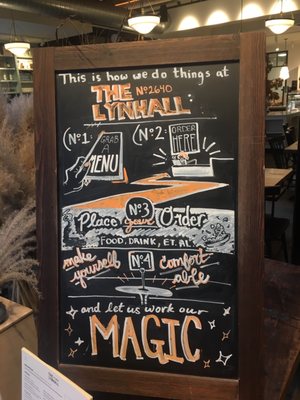 This is how we do things at
THE Nº2640
LYNHALL
(Nº1: GRAB A MENU
(Nº2: ORDER HERE
Nº3
Place your Order
FOOD, DRINK, ET. AL.
Nº4
make yourself comfortable
and let us work our
MAGIC